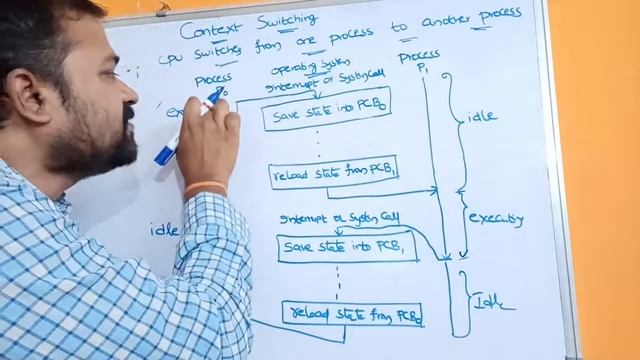 Context Switching
CPU switches from one process to another process
Process
P0
operating system
Process
P1
Interrupt or System Call
Save state into PCB0
idle
reload state from PCB1
executing
Interrupt or System Call
idle
Save state into PCB1
Idle
reload state from PCB0